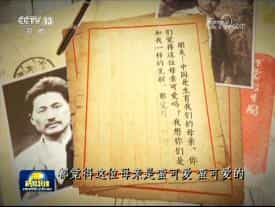 CCTV 13
新闻
朋友！中国是生育我们的母亲。你
们觉得这位母亲可爱吗？我想你们是
和我一样的见解，都觉
新闻联播
都觉得这位母亲是蛮可爱 蛮可爱的